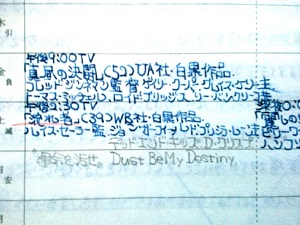 午後9:00TV
「真昼の決闘」(52)UA社・白黒作品.
フレッド・ジンネマン監督 ゲイリー・クーパー、グレイス・ケリー主
トーマス・ミッチェル、ロイド・ブリッジス、リー・バン・クリーフ
午後2:30TV
「流れ者」(39)WB社・白黒作品.
ルイス・セーラー監・ジョン・ガーフィールド、プリシラ・レーン
デッド・エンド・キッズ
"運命を返せ" Dust Be My Destiny
午後0:
木
引
金
負
土
減
日
安
月